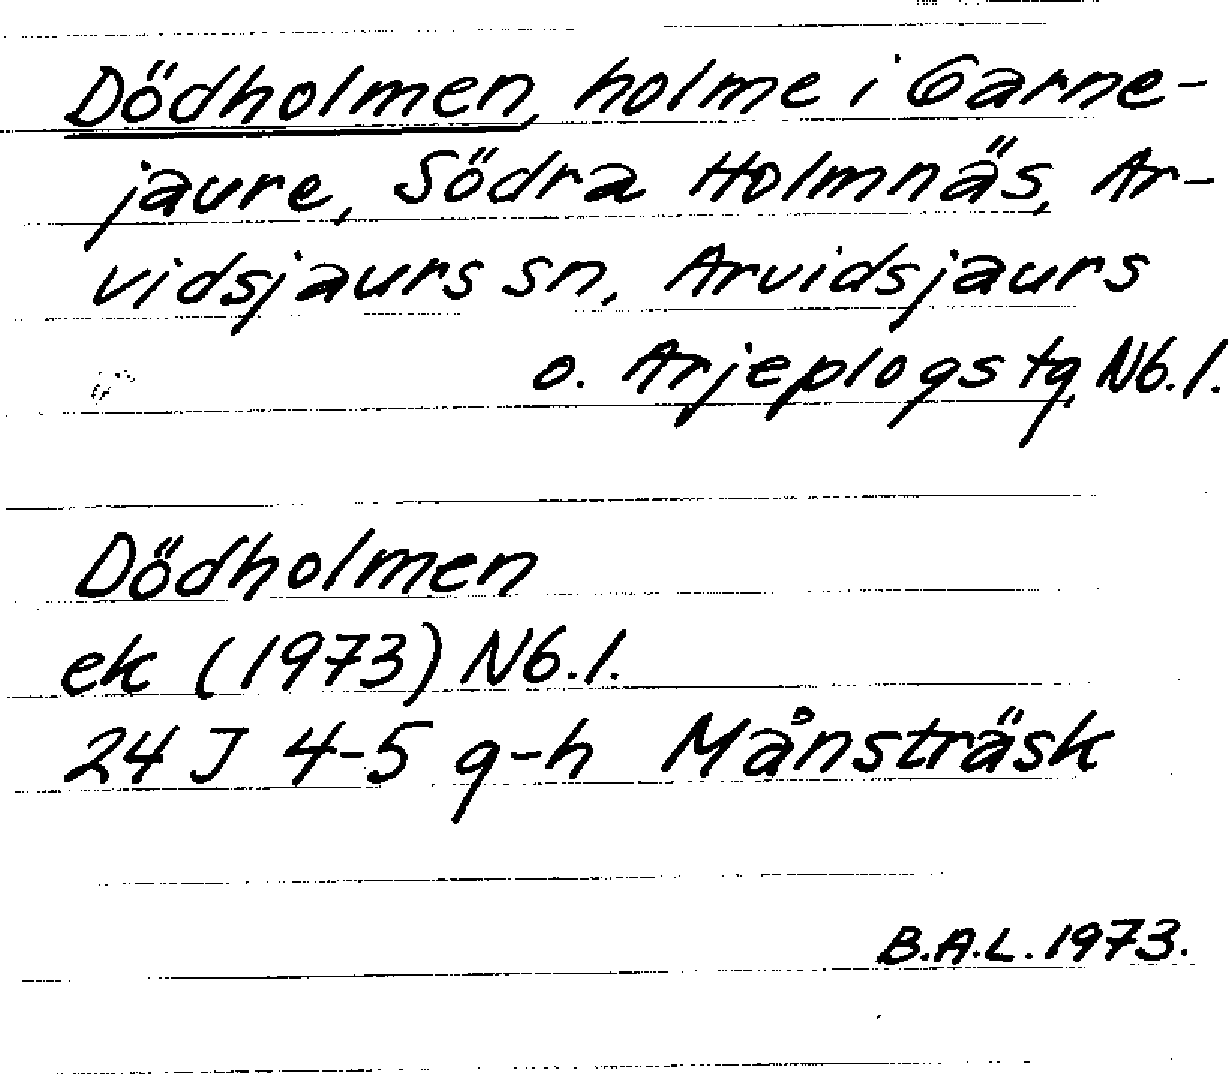 Dödholmen, holme i Garne-
jaure, Södra Holmnäs, Ar-
vidsjaurs sn, Arvidsjaurs
o. Arjeplogs tg, Nb.l.
Dödholmen
ek (1973) Nb.l.
24 J 4-5 g-h Månsträsk
B.A.L. 1973.